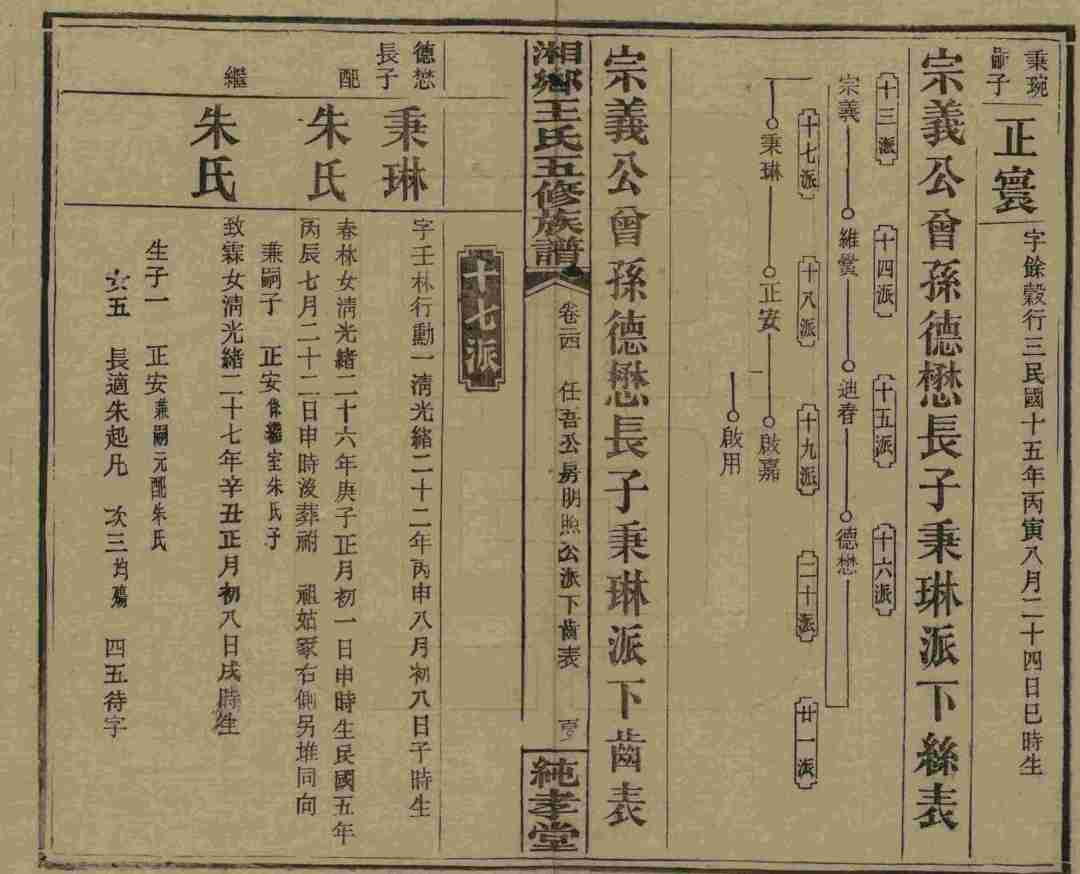 秉琬
嗣子
正寰
字餘毅行三民國十五年丙寅八月二十四日巳時生
宗義公曾孫德懋長子秉琳派下絲表
十三派
十四派
十五派
十六派
宗義
維賞
迪春
德懋
十七派
十八派
十九派
二十派
廿一派
秉琳
正安
啟嘉
啟用
宗義公曾孫德懋長子秉琳派下齒表
湘鄉王氏五修族譜
卷二四
任吾公房明照公派下齒表
純孝堂
十七派
德懋
長子
秉琳
字壬林行勳一清光緒二十二年丙申八月初八日子時生
配
朱氏
春林女清光緒二十六年庚子正月初一日申時生民國五年
丙辰七月二十二日申時沒葬祔 祖姑冢右側另堆同向
兼嗣子 正安係繼室朱氏子
繼
朱氏
致霖女清光緒二十七年辛丑正月初八日戌時生
生子一 正安兼嗣元配朱氏
女五 長適朱起凡 次三均殤 四五待字